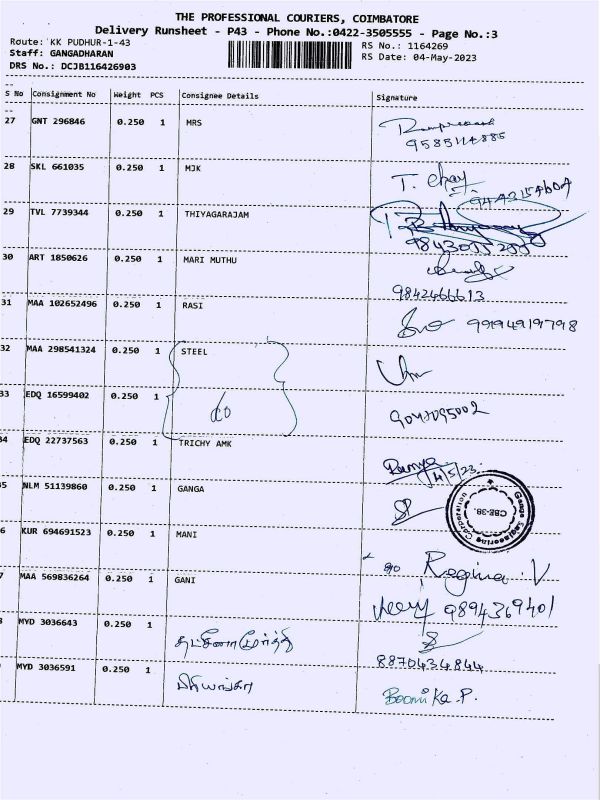 THE PROFESSIONAL COURIERS, COIMBATORE
Delivery Runsheet - P43 - Phone No.:0422-3505555 - Page No.:3
Route: KK PUDHUR-1-43 RS No.: 1164269
Staff: GANGADHARAN RS Date: 04-May-2023
DRS No.: DCJB116426903
S No Consignment No Weight PCS Consignee Details Signature
27 GNT 296846 0.250 1 MRS
9585114885
28 SKL 661035 0.250 1 MJK
29 TVL 7739344 0.250 1 THIYAGARAJAM
30 ART 1850626 0.250 1 MARI MUTHU
9842466613
31 MAA 102652496 0.250 1 RASI
9994919798
32 MAA 298541324 0.250 1 STEEL
33 EDQ 16599402 0.250 1 do
34 EDQ 22737563 0.250 1 TRICHY AMK
Ramya
4/5/23
35 NLM 51139860 0.250 1 GANGA
Ganga Engineering Corporation
CBE-38.
6 KUR 694691523 0.250 1 MANI
Regina V
7 MAA 569836264 0.250 1 GANI
9894369401
8 MYD 3036643 0.250 1 தட்சிணாமூர்த்தி
8870434844
MYD 3036591 0.250 1 பிரியங்கா Boomika.P.